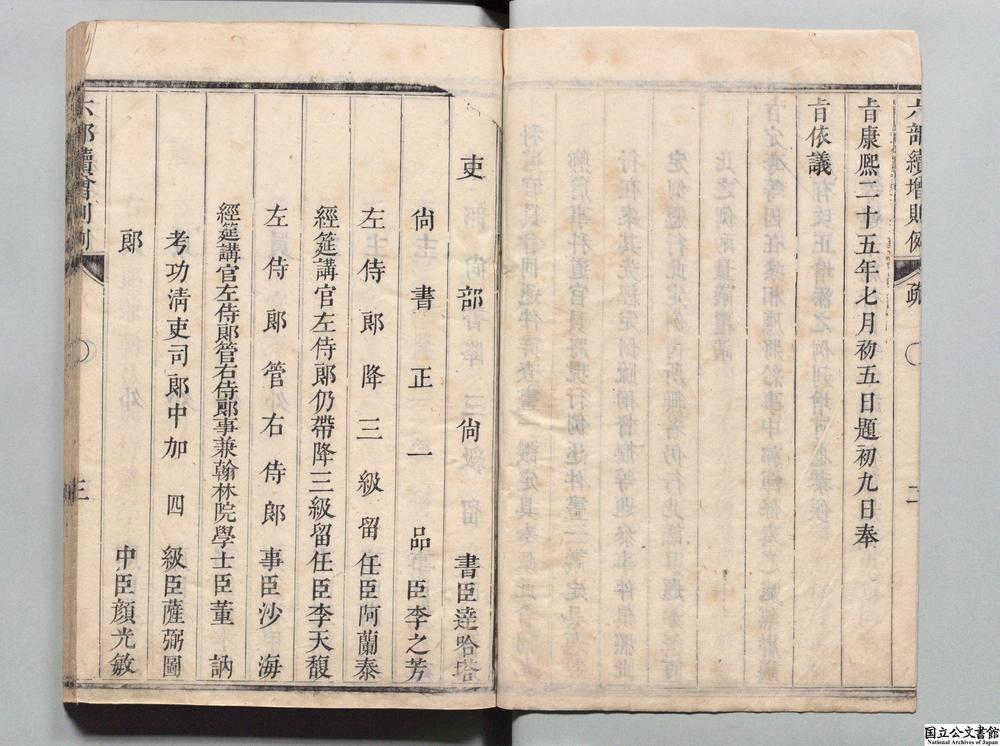 六部續增則例 疏 二
旨康熙二十五年七月初五日題初九日奉
旨依議
吏部尙書臣達哈塔
尙書正一品臣李之芳
左侍郎降三級留任臣阿蘭泰
經筵講官左侍郎仍帶降三級留任臣李天馥
左侍郎管右侍郎事臣沙海
經筵講官左侍郎管右侍郎事兼翰林院學士臣董訥
考功淸吏司郎中加四級臣薩弼圖
郎中臣顏光敏
六部續增則例 三
国立公文書館
National Archives of Japan